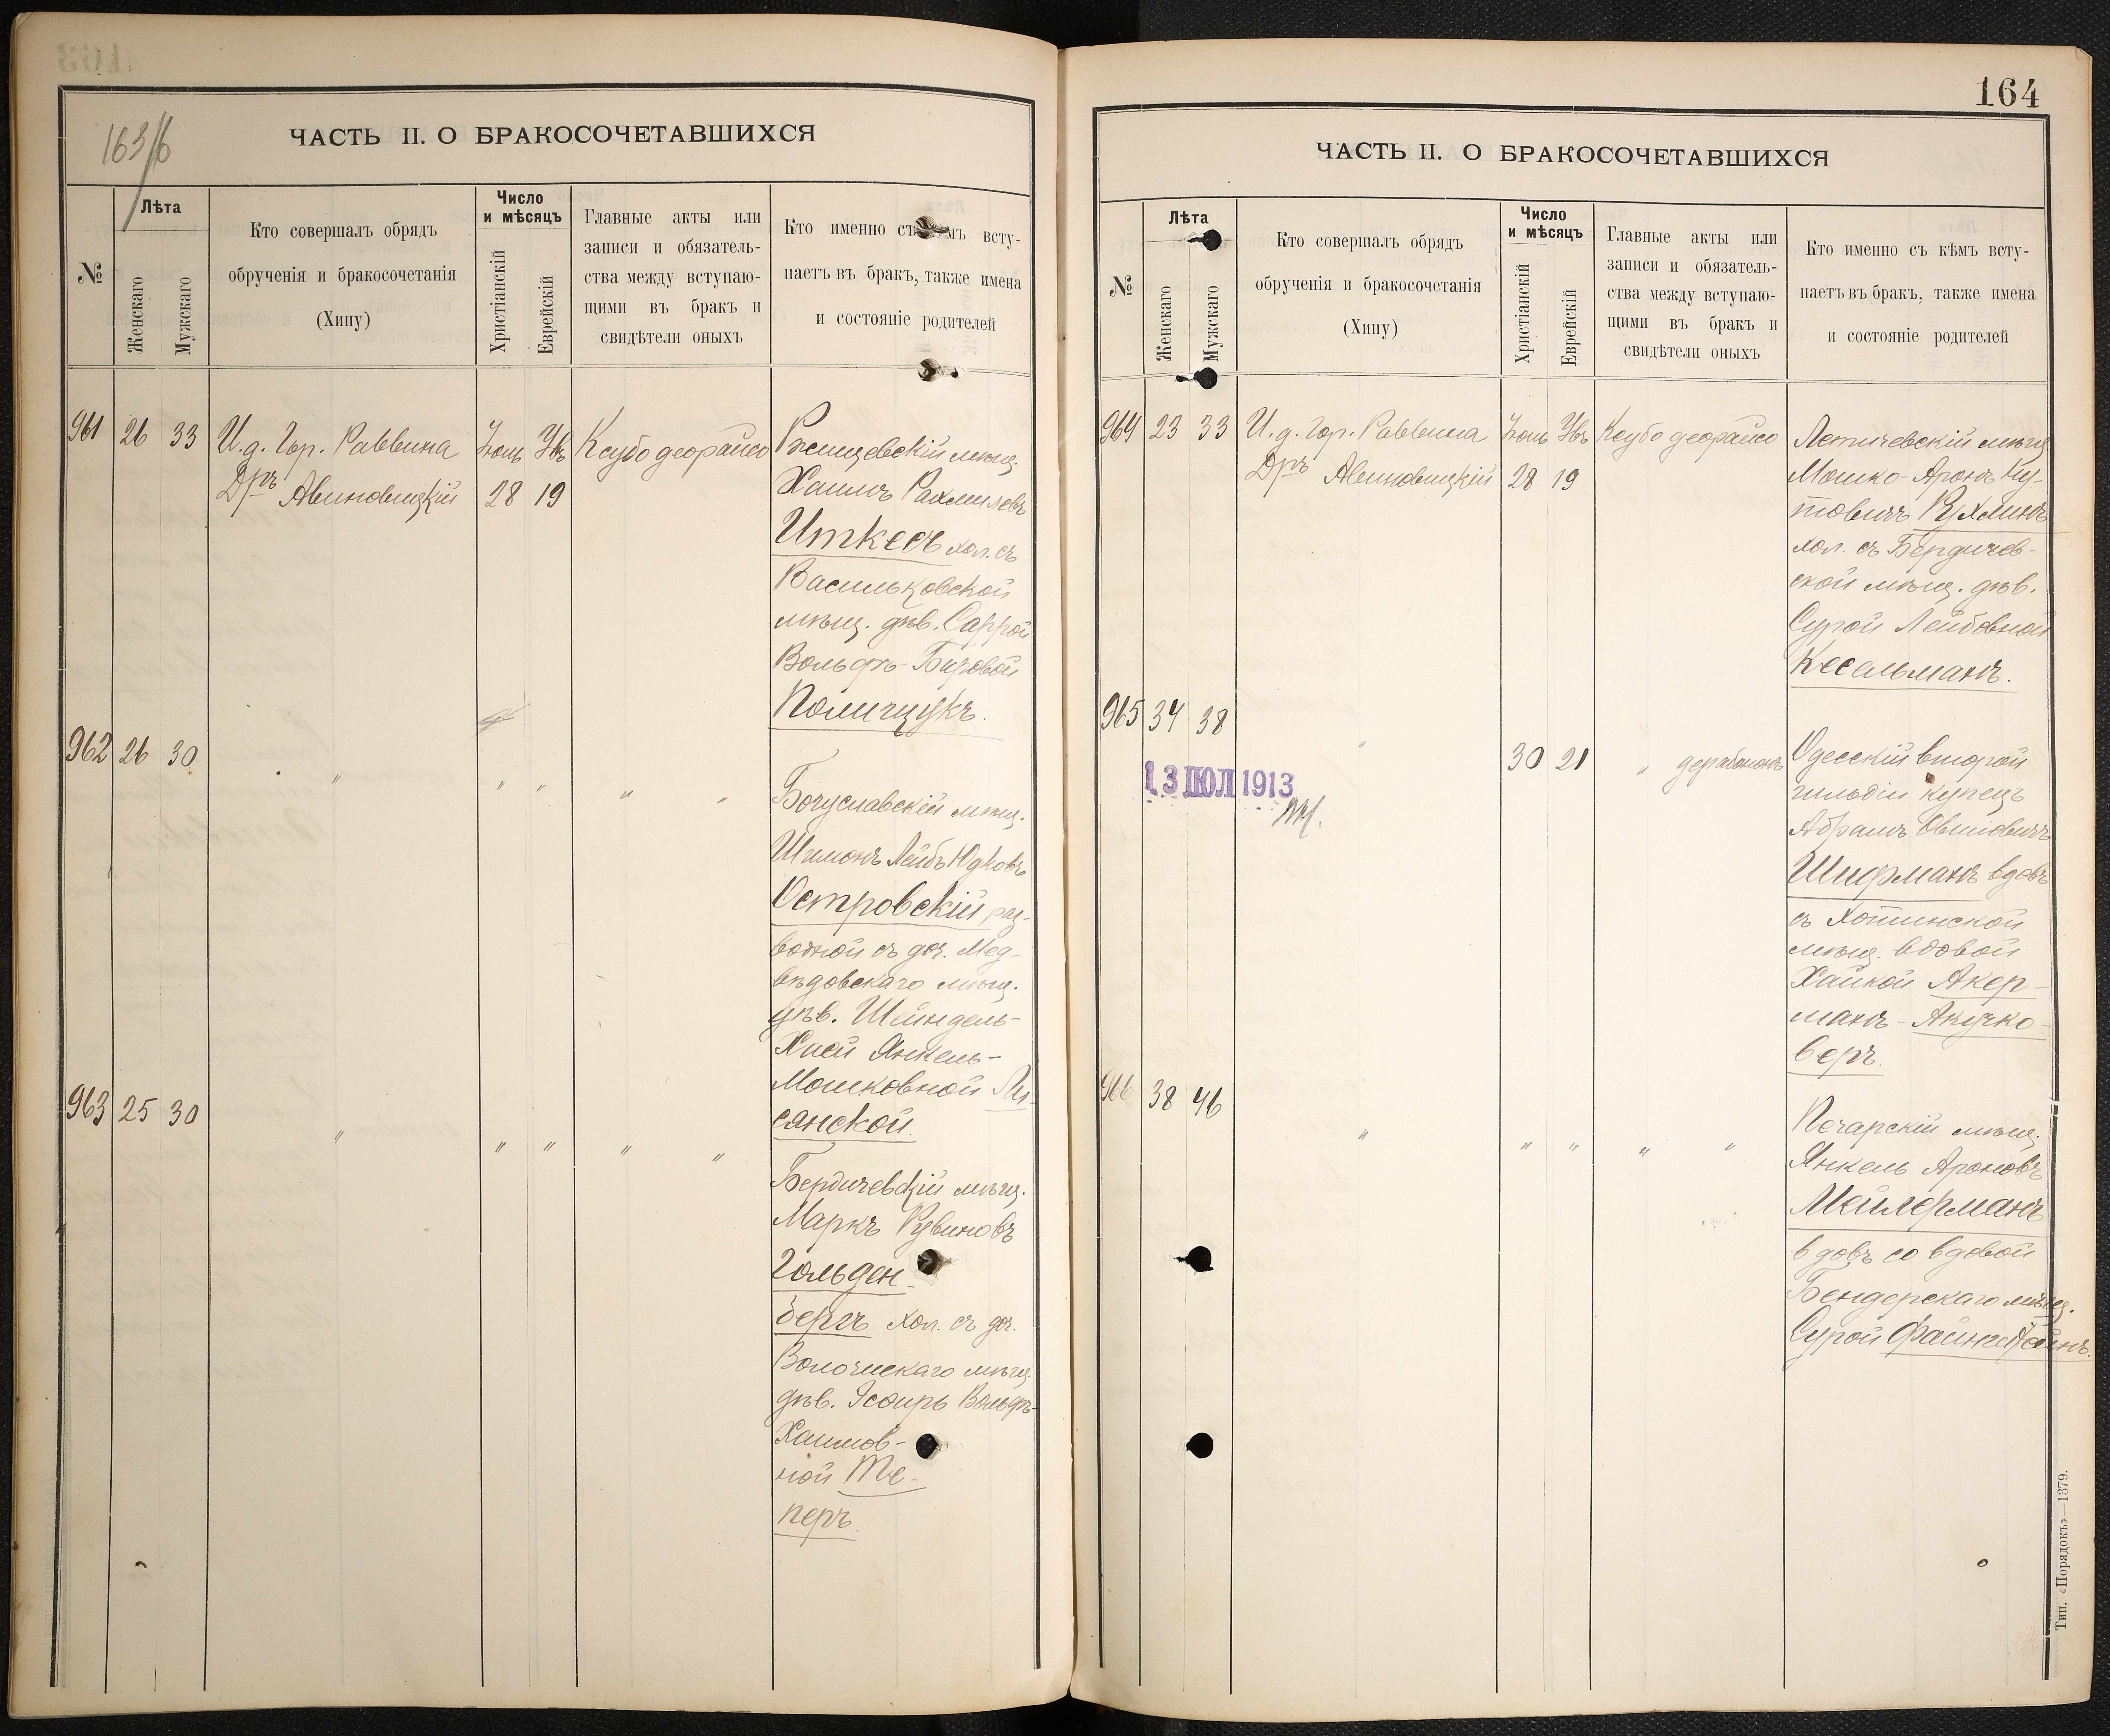 163/6
ЧАСТЬ II. О БРАКОСОЧЕТАВШИХСЯ
№
Лѣта
Женскаго
Мужскаго
Кто совершалъ обрядъ
обрученія и бракосочетанія
(Хипу)
Число
и мѣсяцъ
Христіанскій
Еврейскій
Главные акты или
записи и обязатель-
ства между вступаю-
щими въ бракъ и
свидѣтели оныхъ
Кто именно съ мъ всту-
паетъ въ бракъ, также имена
и состояніе родителей
961 26 33
И.д. Гор. Раввина
Дръ Авиновицкій
28 19
Ксубо деорайсо
Ржищевскій мѣщ.
Хаимъ Рахмилевъ
Иткесъ хол. съ
Васильковской
мѣщ. дѣв. Саррой
Вольфъ-
Полищукъ.
962 26 30
" " " " "
Богуславскій мѣщ.
Шимонъ Лейбъ Юдковъ
Островскій раз-
водной съ доч. Мед-
вѣдовскаго мѣщ.
дѣв. Шейндель-
Хаей Янкель-
Мошковной Ли-
сянской.
963 25 30
" " " " "
Бердичевскій мѣщ.
Маркъ Рувиновъ
Гольден-
бергъ хол. съ доч.
Волочискаго мѣщ.
дѣв. Эсфирь Вольфъ-
Хаимов-
ной Те-
перъ.
164
ЧАСТЬ II. О БРАКОСОЧЕТАВШИХСЯ
№
Лѣта
Женскаго
Мужскаго
Кто совершалъ обрядъ
обрученія и бракосочетанія
(Хипу)
Число
и мѣсяцъ
Христіанскій
Еврейскій
Главные акты или
записи и обязатель-
ства между вступаю-
щими въ бракъ и
свидѣтели оныхъ
Кто именно съ кѣмъ всту-
паетъ въ бракъ, также имена
и состояніе родителей
964 23 33
И.д. Гор. Раввина
Дръ Авиновицкій
28 19
Ксубо деорайсо
Летичевскій мѣщ.
Мошко-Аронъ Ну-
товичъ Рухлинъ
хол. съ Бердичев-
ской мѣщ. дѣв.
Сурой Лейбовной
Кесельманъ.
965 34 38
"
30 21
" дерабононъ
13 ІЮЛ 1913
Одесскій второй
гильдіи купецъ
Абрамъ Овшіовичъ
Шифманъ вдовъ
съ Хотинской
мѣщ. вдовой
Хайкой Акер-
манъ-Анучко-
веръ.
966 38 46
" " " " "
Печарскій мѣщ.
Янкель Ароновъ
Мейлерманъ
вдовъ со вдовой
Бендерскаго мѣщ.
Сурой Файнштейнъ.
Тип. «Порядокъ»—1379.